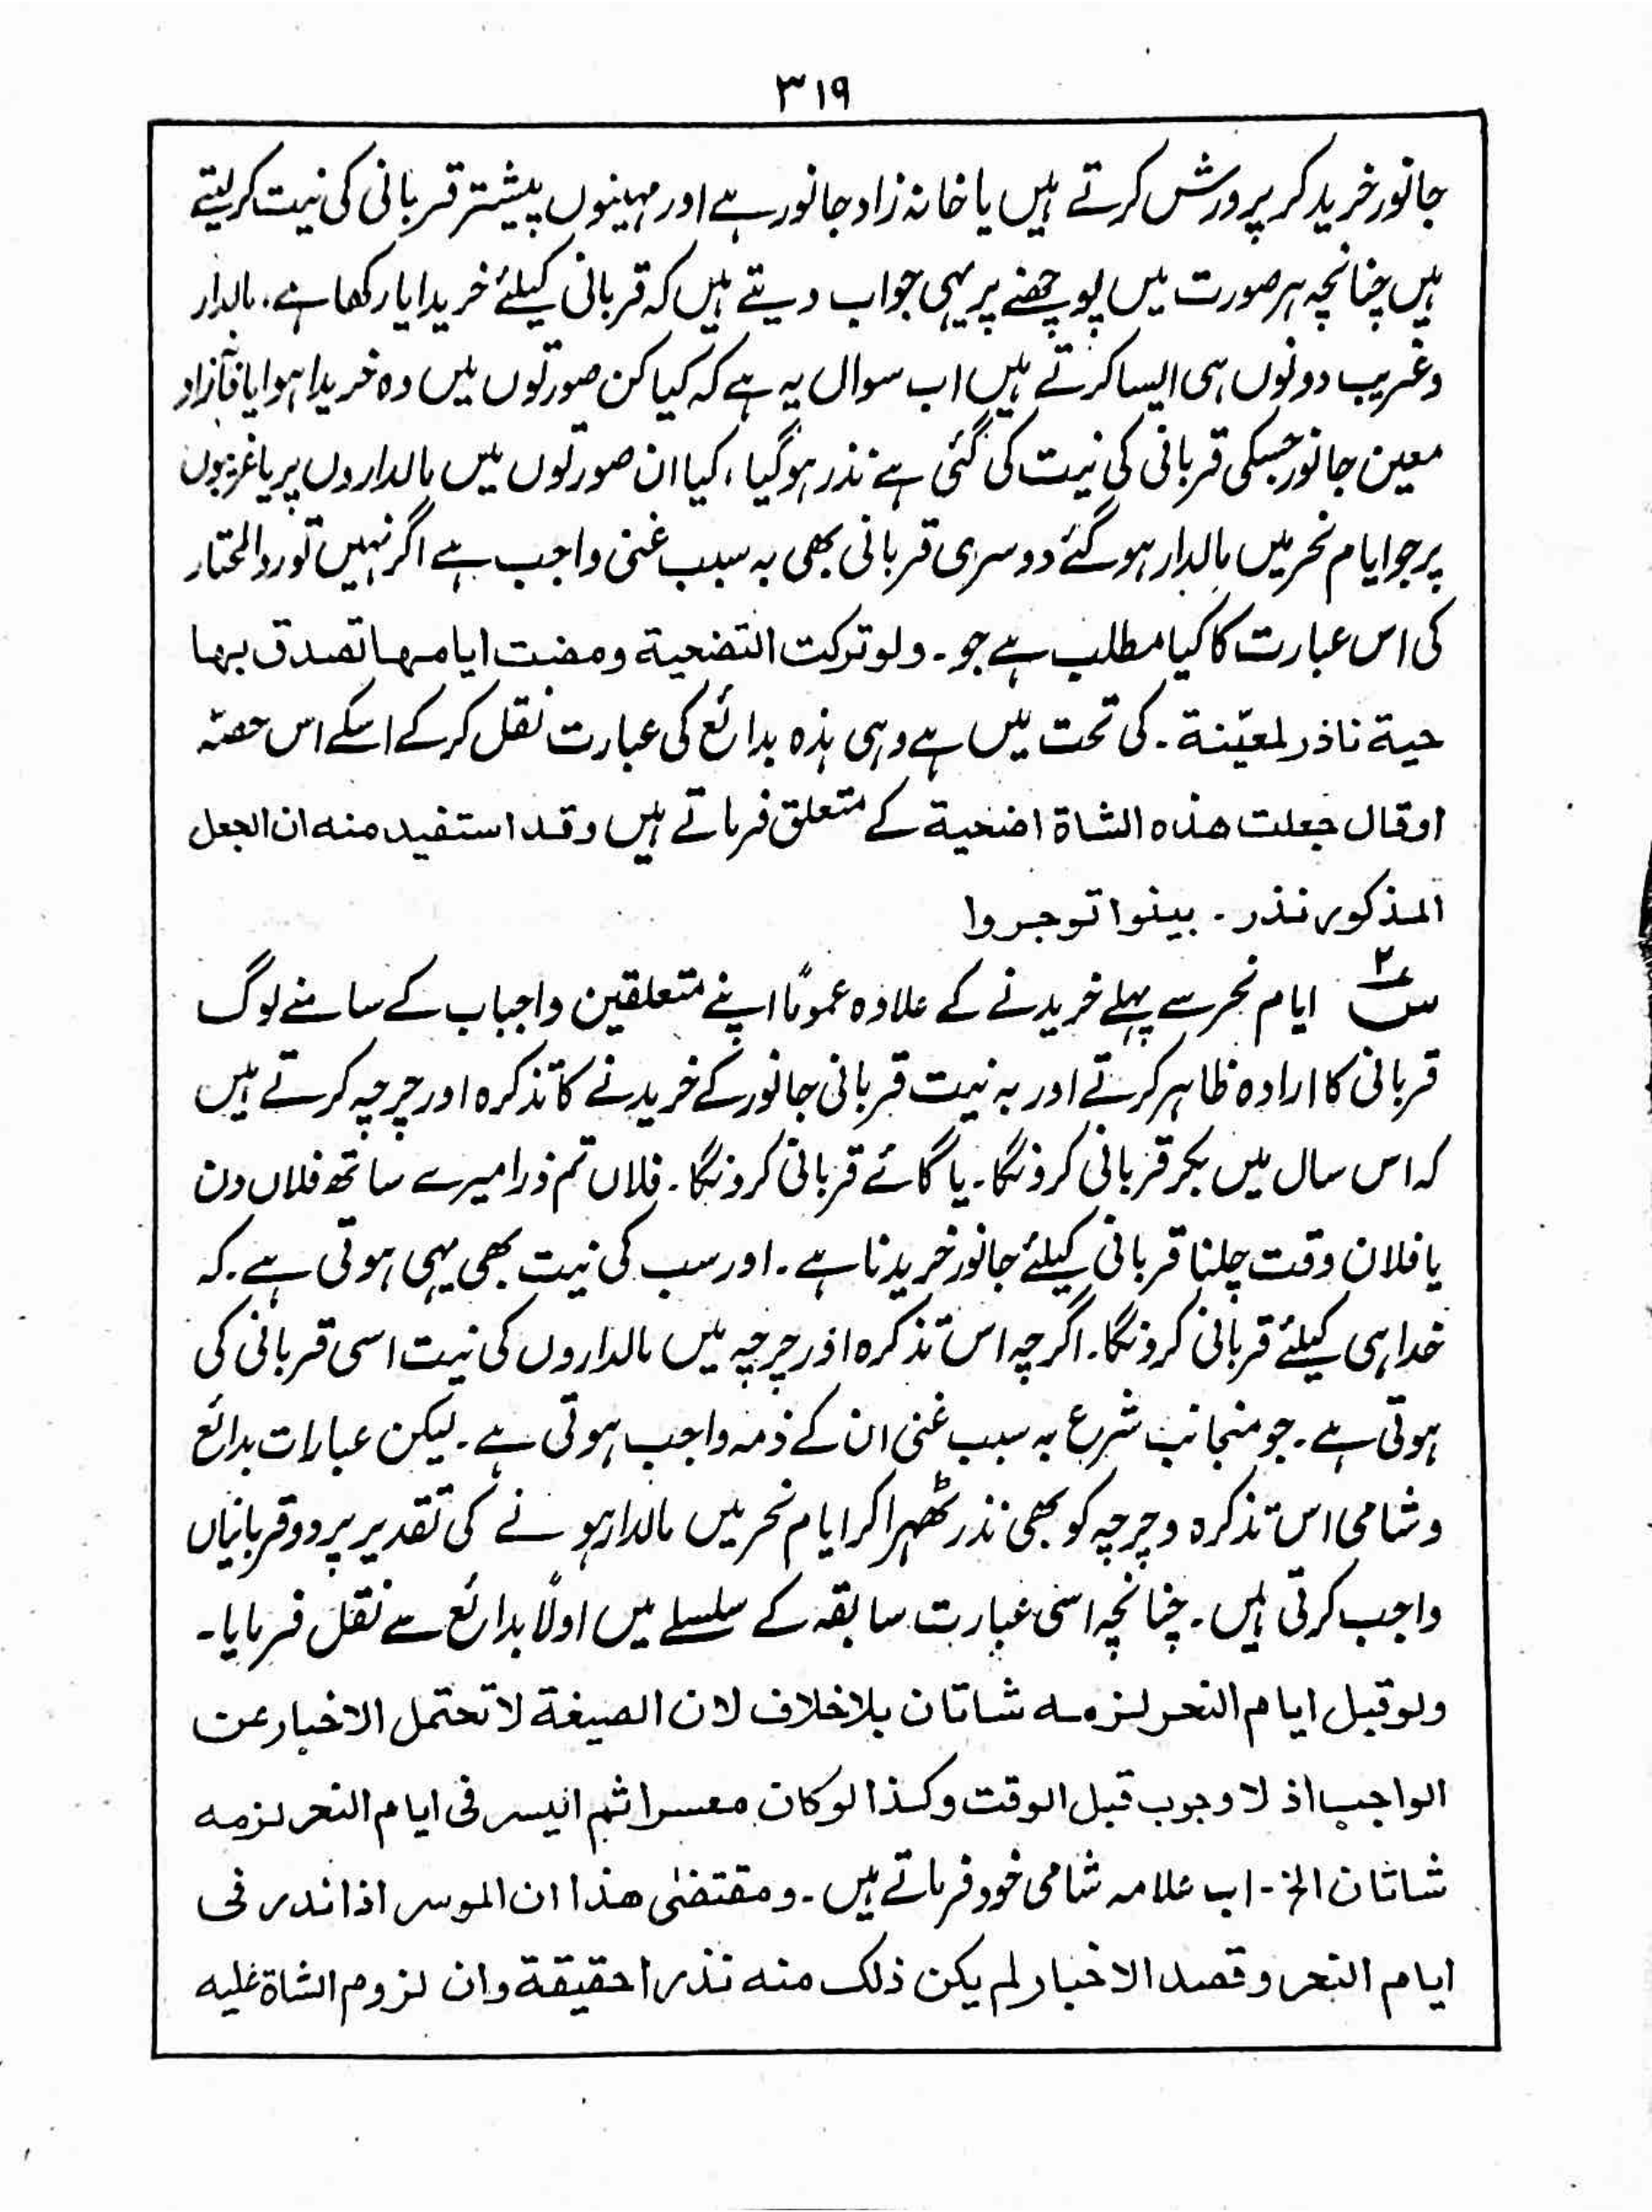 ۳۱۹
جانور خرید کر پرورش کرتے ہیں یا خانہ زاد جانور ہے اور مہینوں پیشتر قربانی کی نیت کر لیتے
ہیں چنانچہ ہر صورت میں پوچھنے پر یہی جواب دیتے ہیں کہ قربانی کیلئے خریدا یا رکھا ہے، مالدار
وغریب دونوں ہی ایسا کرتے ہیں اب سوال یہ ہے کہ کیا کن صورتوں میں وہ خریدا ہوا یا
معین جانور جسکی قربانی کی نیت کی گئی ہے نذر ہوگیا، کیا ان صورتوں میں مالداروں پر یا غریبوں
پر جو ایام نحر میں مالدار ہوگئے دوسری قربانی بھی بہ سبب غنی واجب ہے اگر نہیں تو ردالمحتار
کی اس عبارت کا کیا مطلب ہے جو۔ ولو ترکت التضحیة ومضت ایامہا تصدق بہا
حیة ناذر لمعیّنة۔ کی تحت میں ہے وہی ہذہ بدائع کی عبارت نقل کرکے اسکے اس حصّہ
اوقال جعلت هذه الشاة اضحیة کے متعلق فرماتے ہیں وقد استفید منه ان الجعل
المذکور نذر۔ بینوا توجروا
س۲ ایام نحر سے پہلے خریدنے کے علاوہ عموماً اپنے متعلقین واحباب کے سامنے لوگ
قربانی کا ارادہ ظاہر کرتے اور بہ نیت قربانی جانور کے خریدنے کا تذکرہ اور چرچہ کرتے ہیں
کہ اس سال میں بکر قربانی کرونگا۔ یا گائے قربانی کرونگا۔ فلاں تم ذرا میرے ساتھ فلاں دن
یا فلان وقت چلنا قربانی کیلئے جانور خریدنا ہے۔ اور سب کی نیت بھی یہی ہوتی ہے۔ کہ
خدا ہی کیلئے قربانی کرونگا۔ اگرچہ اس تذکرہ اور چرچہ میں مالداروں کی نیت اسی قربانی کی
ہوتی ہے۔ جو منجانب شرع بہ سبب غنی ان کے ذمہ واجب ہوتی ہے۔ لیکن عبارات بدائع
وشامی اس تذکرہ وچرچہ کو بھی نذر ٹھہرا کر ایام نحر میں مالدار ہونے کی تقدیر پر دو قربانیاں
واجب کرتی ہیں۔ چنانچہ اسی عبارت سابقہ کے سلسلے میں اولاً بدائع سے نقل فرمایا۔
ولو قبل ایام النحر لزمه شاتان بلاخلاف لان الصیغة لا تحتمل الاخبار عن
الواجب اذ لا وجوب قبل الوقت وکذا لوکان معسرا ثم ایسر فی ایام النحر لزمه
شاتان الخ۔ اب علامہ شامی خود فرماتے ہیں۔ ومقتضیٰ هذا ان الموسر اذا نذر فی
ایام النحر وقصد الاخبار لم یکن ذلک منه نذرا حقیقة وان لزوم الشاة علیه